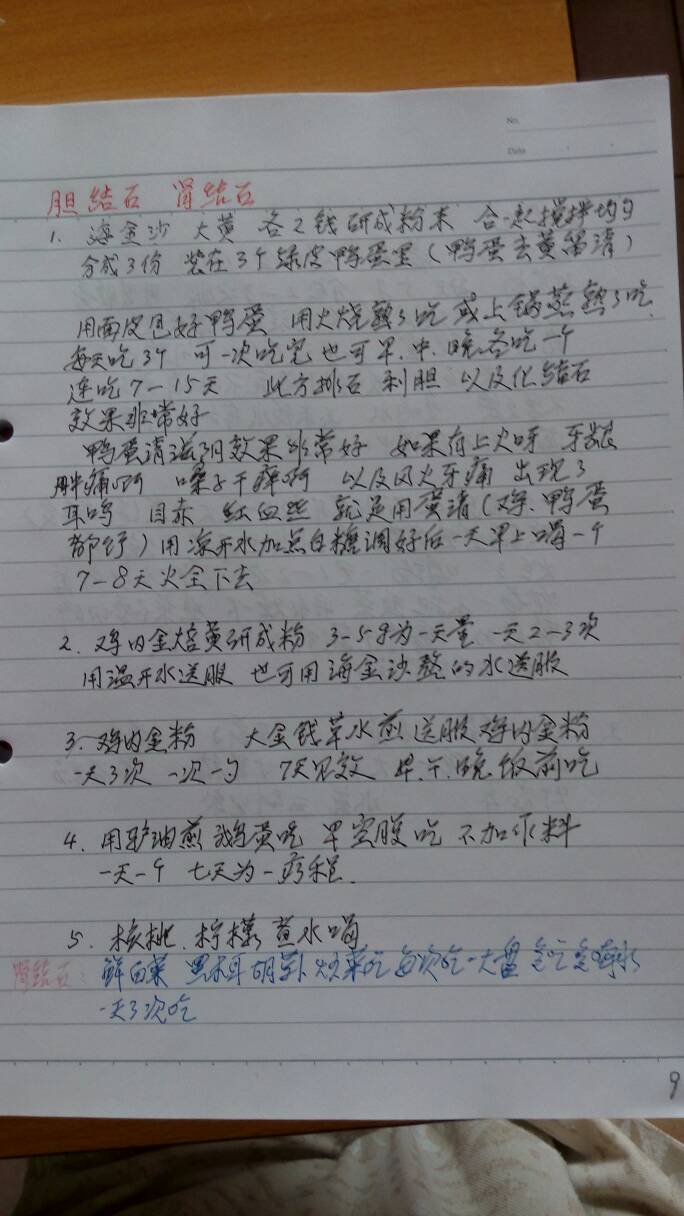 No.
Date
胆结石 肾结石
1. 海金沙 大黄 各2钱研成粉末 合一起搅拌均匀
分成3份 装在3个绿皮鸭蛋里(鸭蛋去黄留清)
用面皮包好鸭蛋 用火烧熟了吃 或上锅蒸熟了吃
每天吃3个 可一次吃完也可早.中.晚各吃一个
连吃7-15天 此方排石 利胆 以及化结石
效果非常好
鸭蛋清滋阴效果非常好 如果有上火呀 牙龈
胖痛啊 嗓子干痒啊 以及风火牙痛 出现了
耳鸣 目赤 红血丝 就是用蛋清(鸡.鸭蛋
都行)用凉开水加点白糖调好后一天早上喝一个
7-8天火全下去
2. 鸡内金焙黄研成粉 3-5g为一天量 一天2-3次
用温开水送服 也可用海金沙整的水送服
3. 鸡内金粉 大金钱草水煎送服鸡内金粉
一天3次 一次一勺 7天见效 早.午.晚饭前吃
4. 用驴油煎鹅蛋吃 早空腹吃 不加作料
一天一个 七天为一疗程.
5. 核桃.柠檬煮水喝
肾结石: 鲜白菜 黑木耳胡萝卜炒菜吃每次吃一大盘
一天3次吃
9